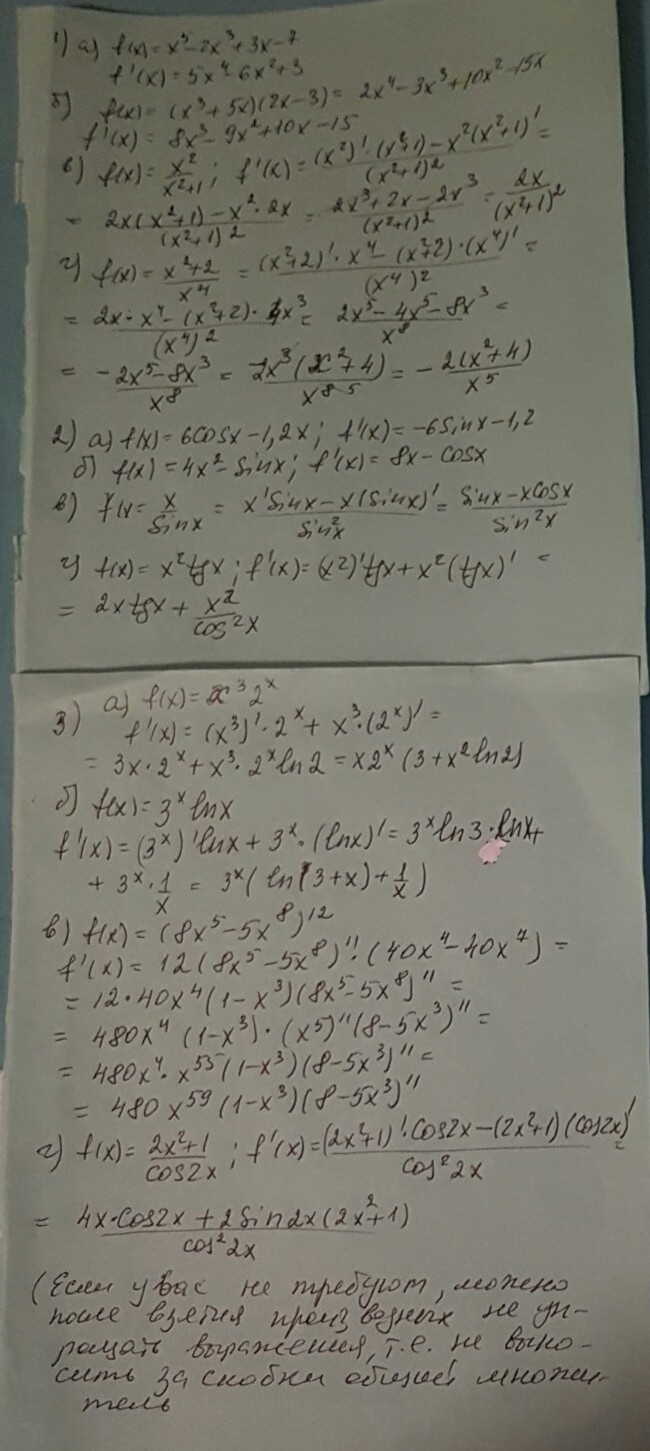 1) а) f(x) = x⁵ - 2x³ + 3x - 7
f'(x) = 5x⁴ - 6x² + 3
б) f(x) = (x³ + 5x)(2x - 3) = 2x⁴ - 3x³ + 10x² - 15x
f'(x) = 8x³ - 9x² + 10x - 15
в) f(x) = x²/(x²+1); f'(x) = ((x²)'·(x²+1) - x²(x²+1)')/(x²+1)² =
= (2x(x²+1) - x²·2x)/(x²+1)² = (2x³ + 2x - 2x³)/(x²+1)² = 2x/(x²+1)²
г) f(x) = (x²+2)/x⁴ = ((x²+2)'·x⁴ - (x²+2)·(x⁴)')/(x⁴)² =
= (2x·x⁴ - (x²+2)·4x³)/(x⁴)² = (2x⁵ - 4x⁵ - 8x³)/x⁸ =
= (-2x⁵ - 8x³)/x⁸ = -2x³(x²+4)/x⁸ ⁵ = - 2(x²+4)/x⁵
2) а) f(x) = 6cosx - 1,2x; f'(x) = -6sinx - 1,2
б) f(x) = 4x² - sinx; f'(x) = 8x - cosx
в) f'(x = x/sinx = (x'sinx - x(sinx)')/sin²x = (sinx - xcosx)/sin²x
г) f(x) = x²tgx; f'(x) = (x²)'tgx + x²(tgx)' =
= 2xtgx + x²/cos²x
3) а) f(x) = x³2ˣ
f'(x) = (x³)'·2ˣ + x³·(2ˣ)' =
= 3x·2ˣ + x³·2ˣln2 = x2ˣ(3 + x²ln2)
б) f(x) = 3ˣlnx
f'(x) = (3ˣ)'lnx + 3ˣ·(lnx)' = 3ˣln3·lnx+
+ 3ˣ·1/x = 3ˣ(ln(3+x) + 1/x)
в) f(x) = (8x⁵ - 5x⁸)¹²
f'(x) = 12(8x⁵ - 5x⁸)¹¹·(40x⁴ - 40x⁷) =
= 12·40x⁴(1 - x³)(8x⁵ - 5x⁸)¹¹ =
= 480x⁴(1 - x³)·(x⁵)¹¹(8 - 5x³)¹¹ =
= 480x⁴·x⁵⁵(1 - x³)(8 - 5x³)¹¹ =
= 480x⁵⁹(1 - x³)(8 - 5x³)¹¹
г) f(x) = (2x²+1)/cos2x; f'(x) = ((2x²+1)'·cos2x - (2x²+1)(cos2x)')/cos²2x =
= (4x·cos2x + 2sin2x(2x²+1))/cos²2x
(Если у вас не требуют, можно
после взятия производных не уп-
рощать выражения, т.е. не выно-
сить за скобки общий множи-
тель